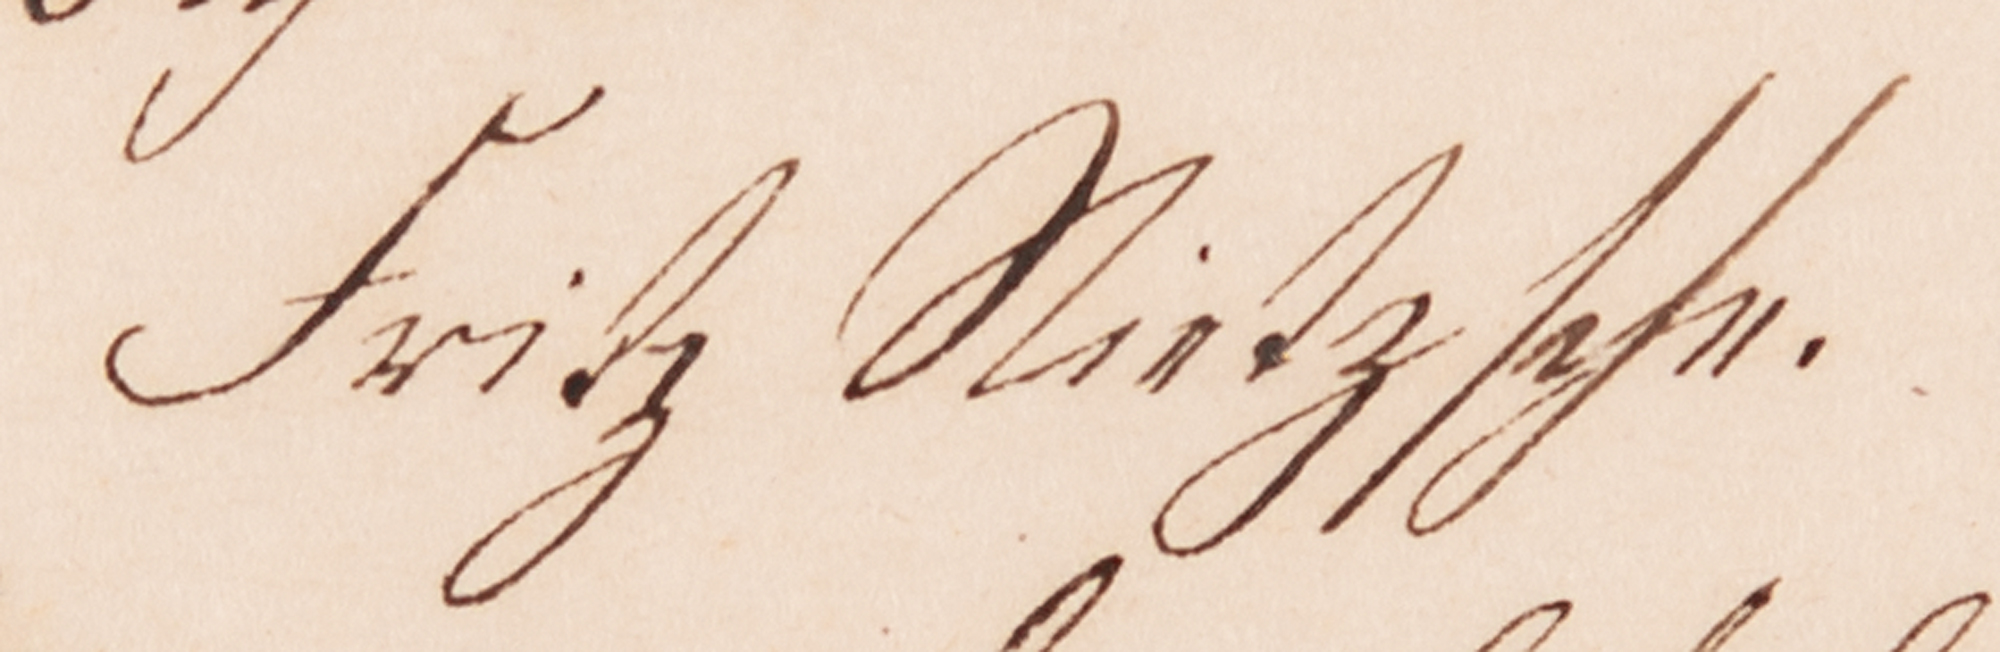 Fritz Nietzsche.